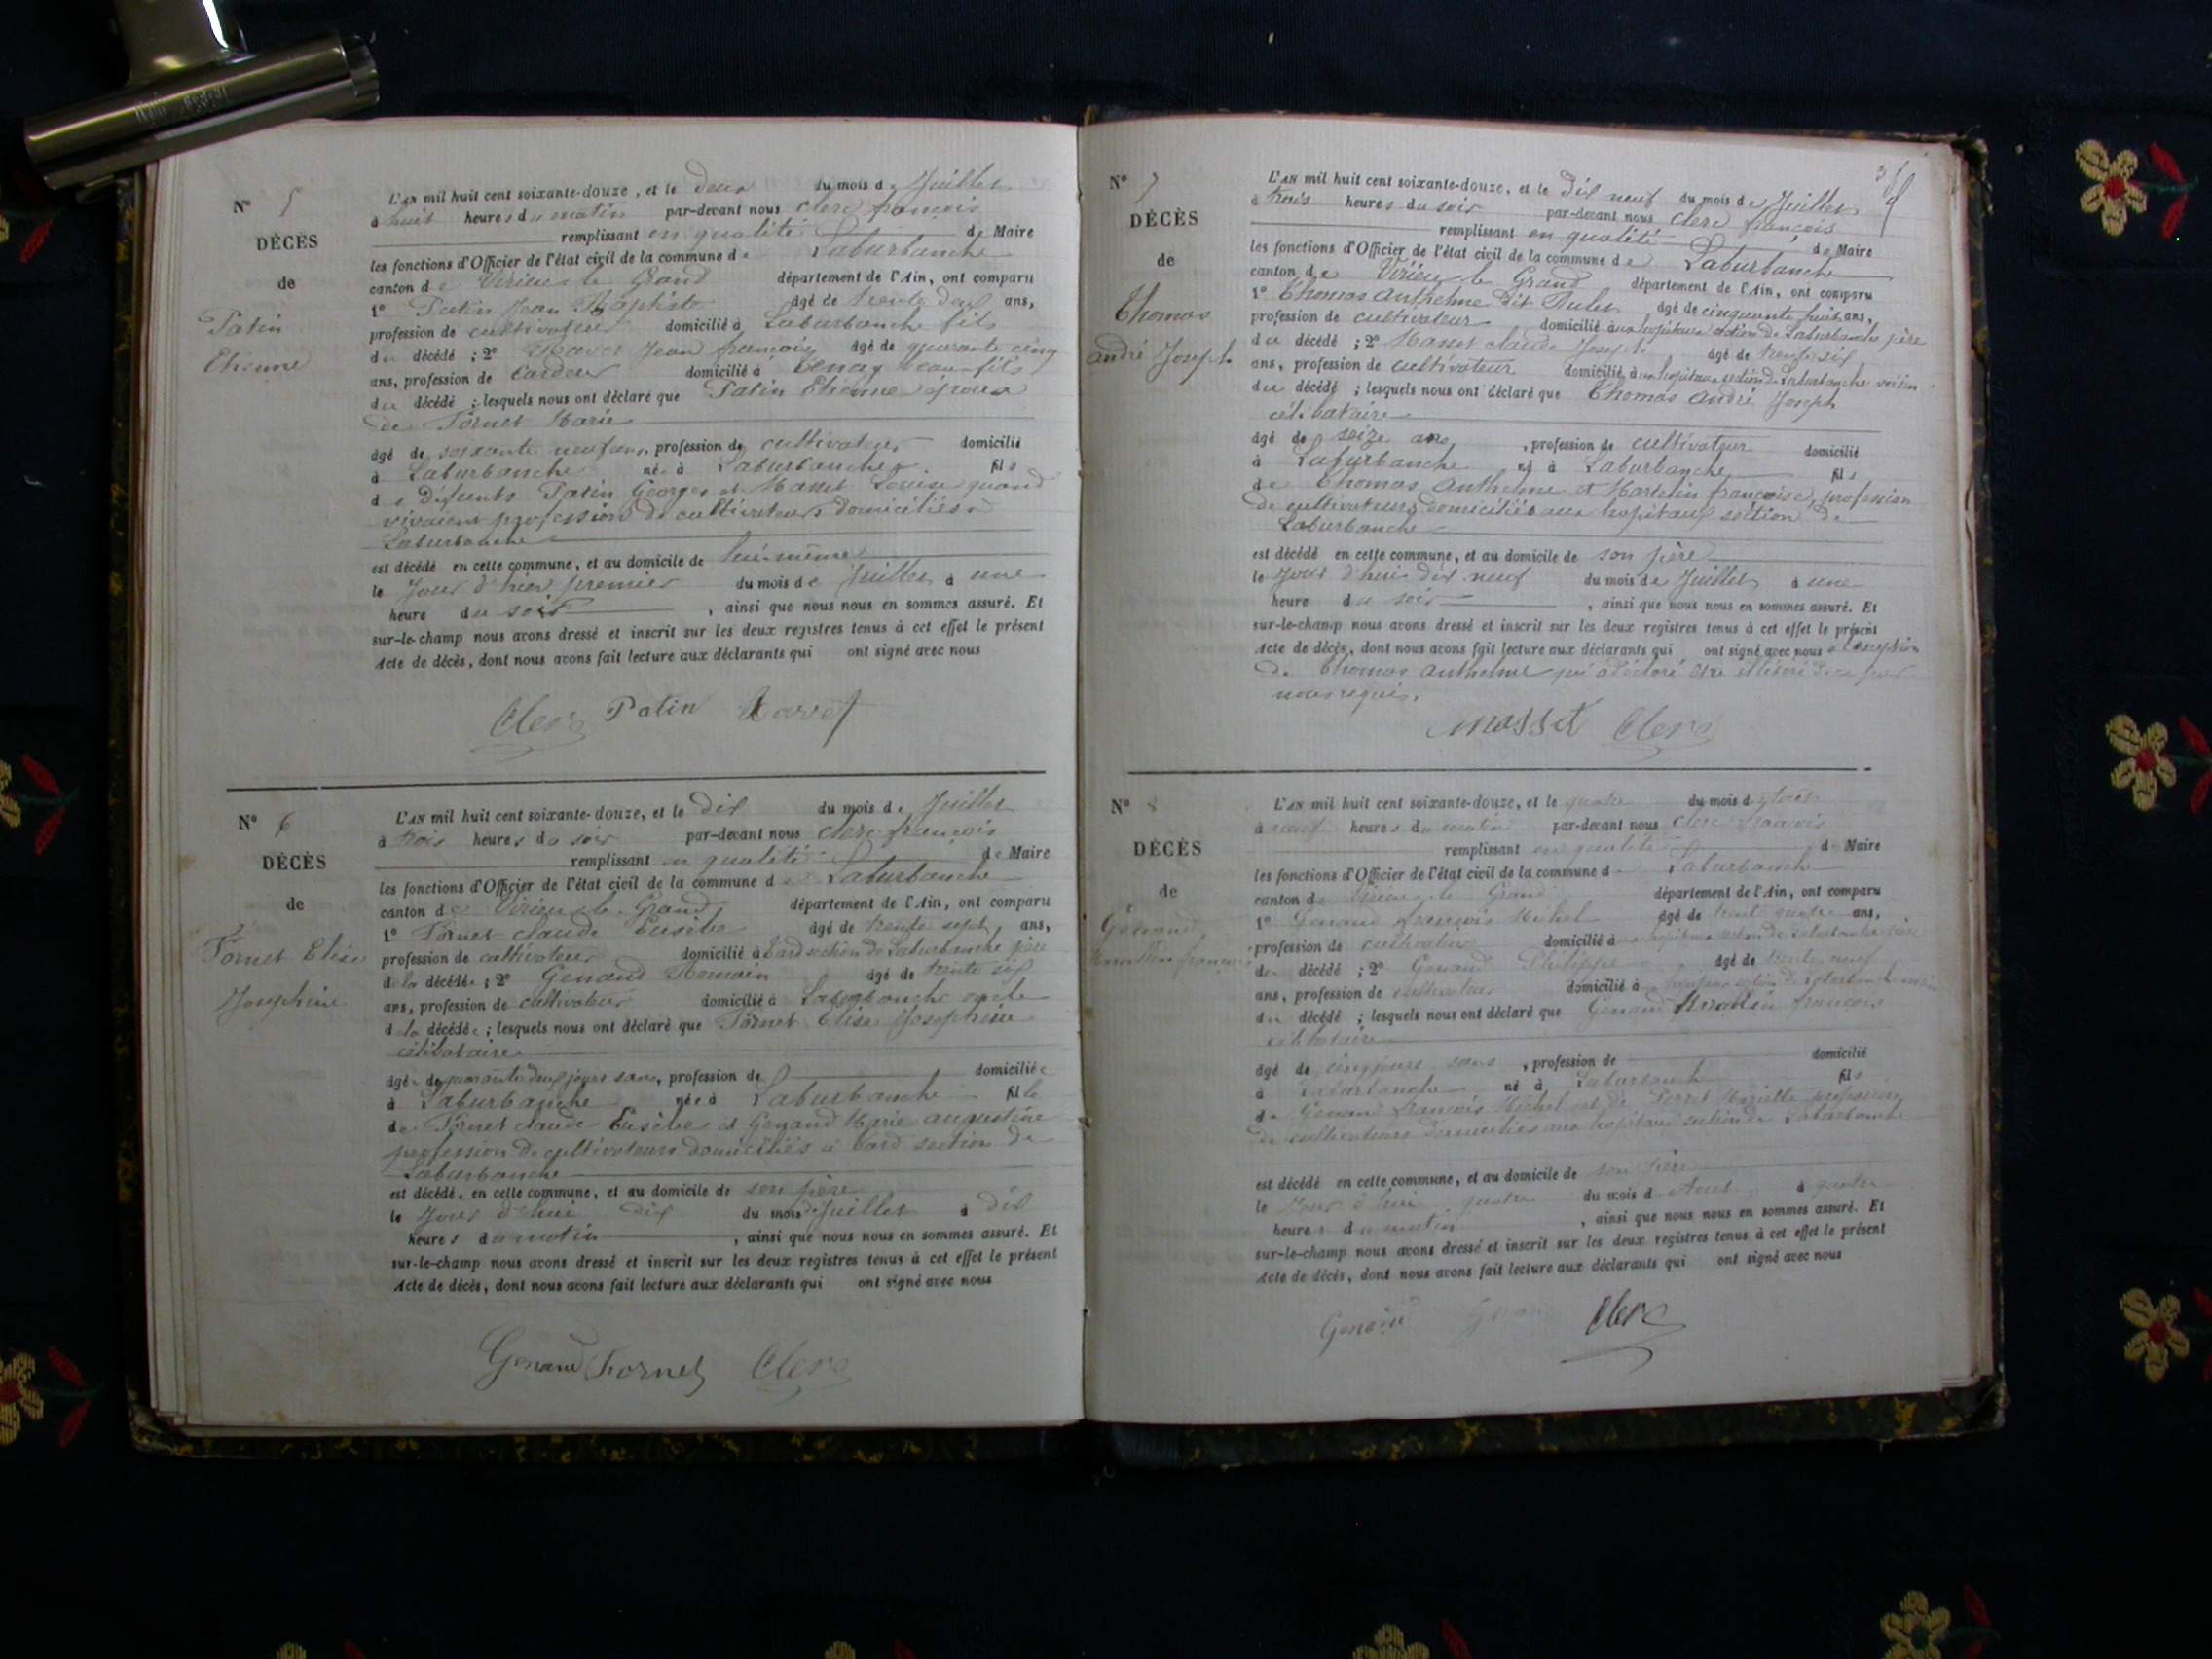 N° 5
DÉCÈS
de
Patin
Etienne
L'AN mil huit cent soixante-douze, et le deux du mois de Juillet
à huit heures du matin par-devant nous Clerc françois
remplissant en qualité de Maire
les fonctions d'Officier de l'état civil de la commune de Laburbanche
canton de Virieu le Grand département de l'Ain, ont comparu
1° Patin Jean Baptiste âgé de trente deux ans,
profession de cultivateur domicilié à Laburbanche fils
du décédé ; 2° Jean françois âgé de quarante cinq
ans, profession de Cardeur domicilié à Tenay beau-fils
du décédé ; lesquels nous ont déclaré que Patin Etienne époux
de Fornet Marie
âgé de soixante neuf ans, profession de cultivateur domicilié
à Laburbanche né à Laburbanche fils
des défunts Patin Georges et Masset Louise quand
vivaient profession de cultivateurs domiciliés à
Laburbanche
est décédé en cette commune, et au domicile de lui-même
le Jour d'hier premier du mois de Juillet à une
heure du soir , ainsi que nous nous en sommes assuré. Et
sur-le-champ nous avons dressé et inscrit sur les deux registres tenus à cet effet le présent
Acte de décès, dont nous avons fait lecture aux déclarants qui ont signé avec nous
Clerc Patin
N° 6
DÉCÈS
de
Fornet Elise
Josephine
L'AN mil huit cent soixante-douze, et le dix du mois de Juillet
à trois heures du soir par-devant nous Clerc françois
remplissant en qualité de Maire
les fonctions d'Officier de l'état civil de la commune de Laburbanche
canton de Virieu le Grand département de l'Ain, ont comparu
1° Fornet Claude Eusèbe âgé de trente sept ans,
profession de cultivateur domicilié à bard section de Laburbanche père
de la décédée ; 2° Genand Romain âgé de trente six
ans, profession de cultivateur domicilié à Laburbanche oncle
de la décédée ; lesquels nous ont déclaré que Fornet Elise Josephine
célibataire
âgée de quarante deux jours sans, profession de domiciliée
à Laburbanche née à Laburbanche fille
de Fornet Claude Eusèbe et Genand Marie augustine
profession de cultivateurs domiciliés à bard section de
Laburbanche
est décédée en cette commune, et au domicile de son père
le Jour d'hui dix du mois de Juillet à dix
heures du matin , ainsi que nous nous en sommes assuré. Et
sur-le-champ nous avons dressé et inscrit sur les deux registres tenus à cet effet le présent
Acte de décès, dont nous avons fait lecture aux déclarants qui ont signé avec nous
Genand Fornet Clerc
N° 7
DÉCÈS
de
Thomas
andré Joseph
L'AN mil huit cent soixante-douze, et le dix neuf du mois de Juillet
à trois heures du soir par-devant nous Clerc françois
remplissant en qualité de Maire
les fonctions d'Officier de l'état civil de la commune de Laburbanche
canton de Virieu le Grand département de l'Ain, ont comparu
1° Thomas Anthelme dit âgé de cinquante huit ans,
profession de cultivateur domicilié aux hopitaux section de Laburbanche père
du décédé ; 2° Masset Claude Joseph âgé de trente six
ans, profession de cultivateur domicilié aux hopitaux section de Laburbanche voisin
du décédé ; lesquels nous ont déclaré que Thomas André Joseph
célibataire
âgé de seize ans, profession de cultivateur domicilié
à Laburbanche né à Laburbanche fils
de Thomas Anthelme et Martelin françoise, profession
de cultivateurs domiciliés aux hopitaux section de
Laburbanche
est décédé en cette commune, et au domicile de son père
le Jour d'hui dix neuf du mois de Juillet à une
heure du soir , ainsi que nous nous en sommes assuré. Et
sur-le-champ nous avons dressé et inscrit sur les deux registres tenus à cet effet le présent
Acte de décès, dont nous avons fait lecture aux déclarants qui ont signé avec nous à l'exception
de Thomas Anthelme qui a déclaré être illitéré de ce par
nous requis.
Masset Clerc
N° 8
DÉCÈS
de
Genand
françois
L'AN mil huit cent soixante-douze, et le quatre du mois d'Août
à neuf heures du matin par-devant nous Clerc françois
remplissant en qualité de Maire
les fonctions d'Officier de l'état civil de la commune de Laburbanche
canton de Virieu le Grand département de l'Ain, ont comparu
1° Genand françois Michel âgé de trente quatre ans,
profession de cultivateur domicilié aux hopitaux section de Laburbanche père
du décédé ; 2° Genand Philippe âgé de trente neuf
ans, profession de cultivateur domicilié aux hopitaux section de Laburbanche voisin
du décédé ; lesquels nous ont déclaré que Genand françois
célibataire
âgé de cinq jours sans , profession de domicilié
à Laburbanche né à Laburbanche fils
de Genand françois Michel et de Mariette profession
de cultivateurs domiciliés aux hopitaux section de Laburbanche
est décédé en cette commune, et au domicile de son père
le Jour d'hui quatre du mois d'Août à quatre
heures du matin , ainsi que nous nous en sommes assuré. Et
sur-le-champ nous avons dressé et inscrit sur les deux registres tenus à cet effet le présent
Acte de décès, dont nous avons fait lecture aux déclarants qui ont signé avec nous
Genand Genand Clerc